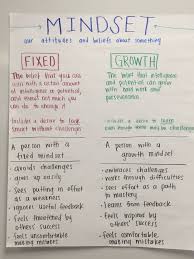 MINDSET
our attitudes and beliefs about something
FIXED
The belief that you are
with a certain amount
of intelligence or potential,
and there's not much you
can do to change it
Includes a desire to look
smart without challenges
A person with a
fixed mindset
avoids challenges
gives up easily
Sees putting effort
as a weakness
ignores useful feedback
Feels threatened by
others' success
Feels uncomfortable
making mistakes
GROWTH
The belief that intelligence
and potential can
with hard work
and perseverance
Includes a desire to learn
even though things may be challenging
A person with a
growth mindset
embraces challenges
works through difficulties
Sees effort as a path
to mastery
Learns from feedback
Feels inspired by
others' success
Feels comfortable
making mistakes